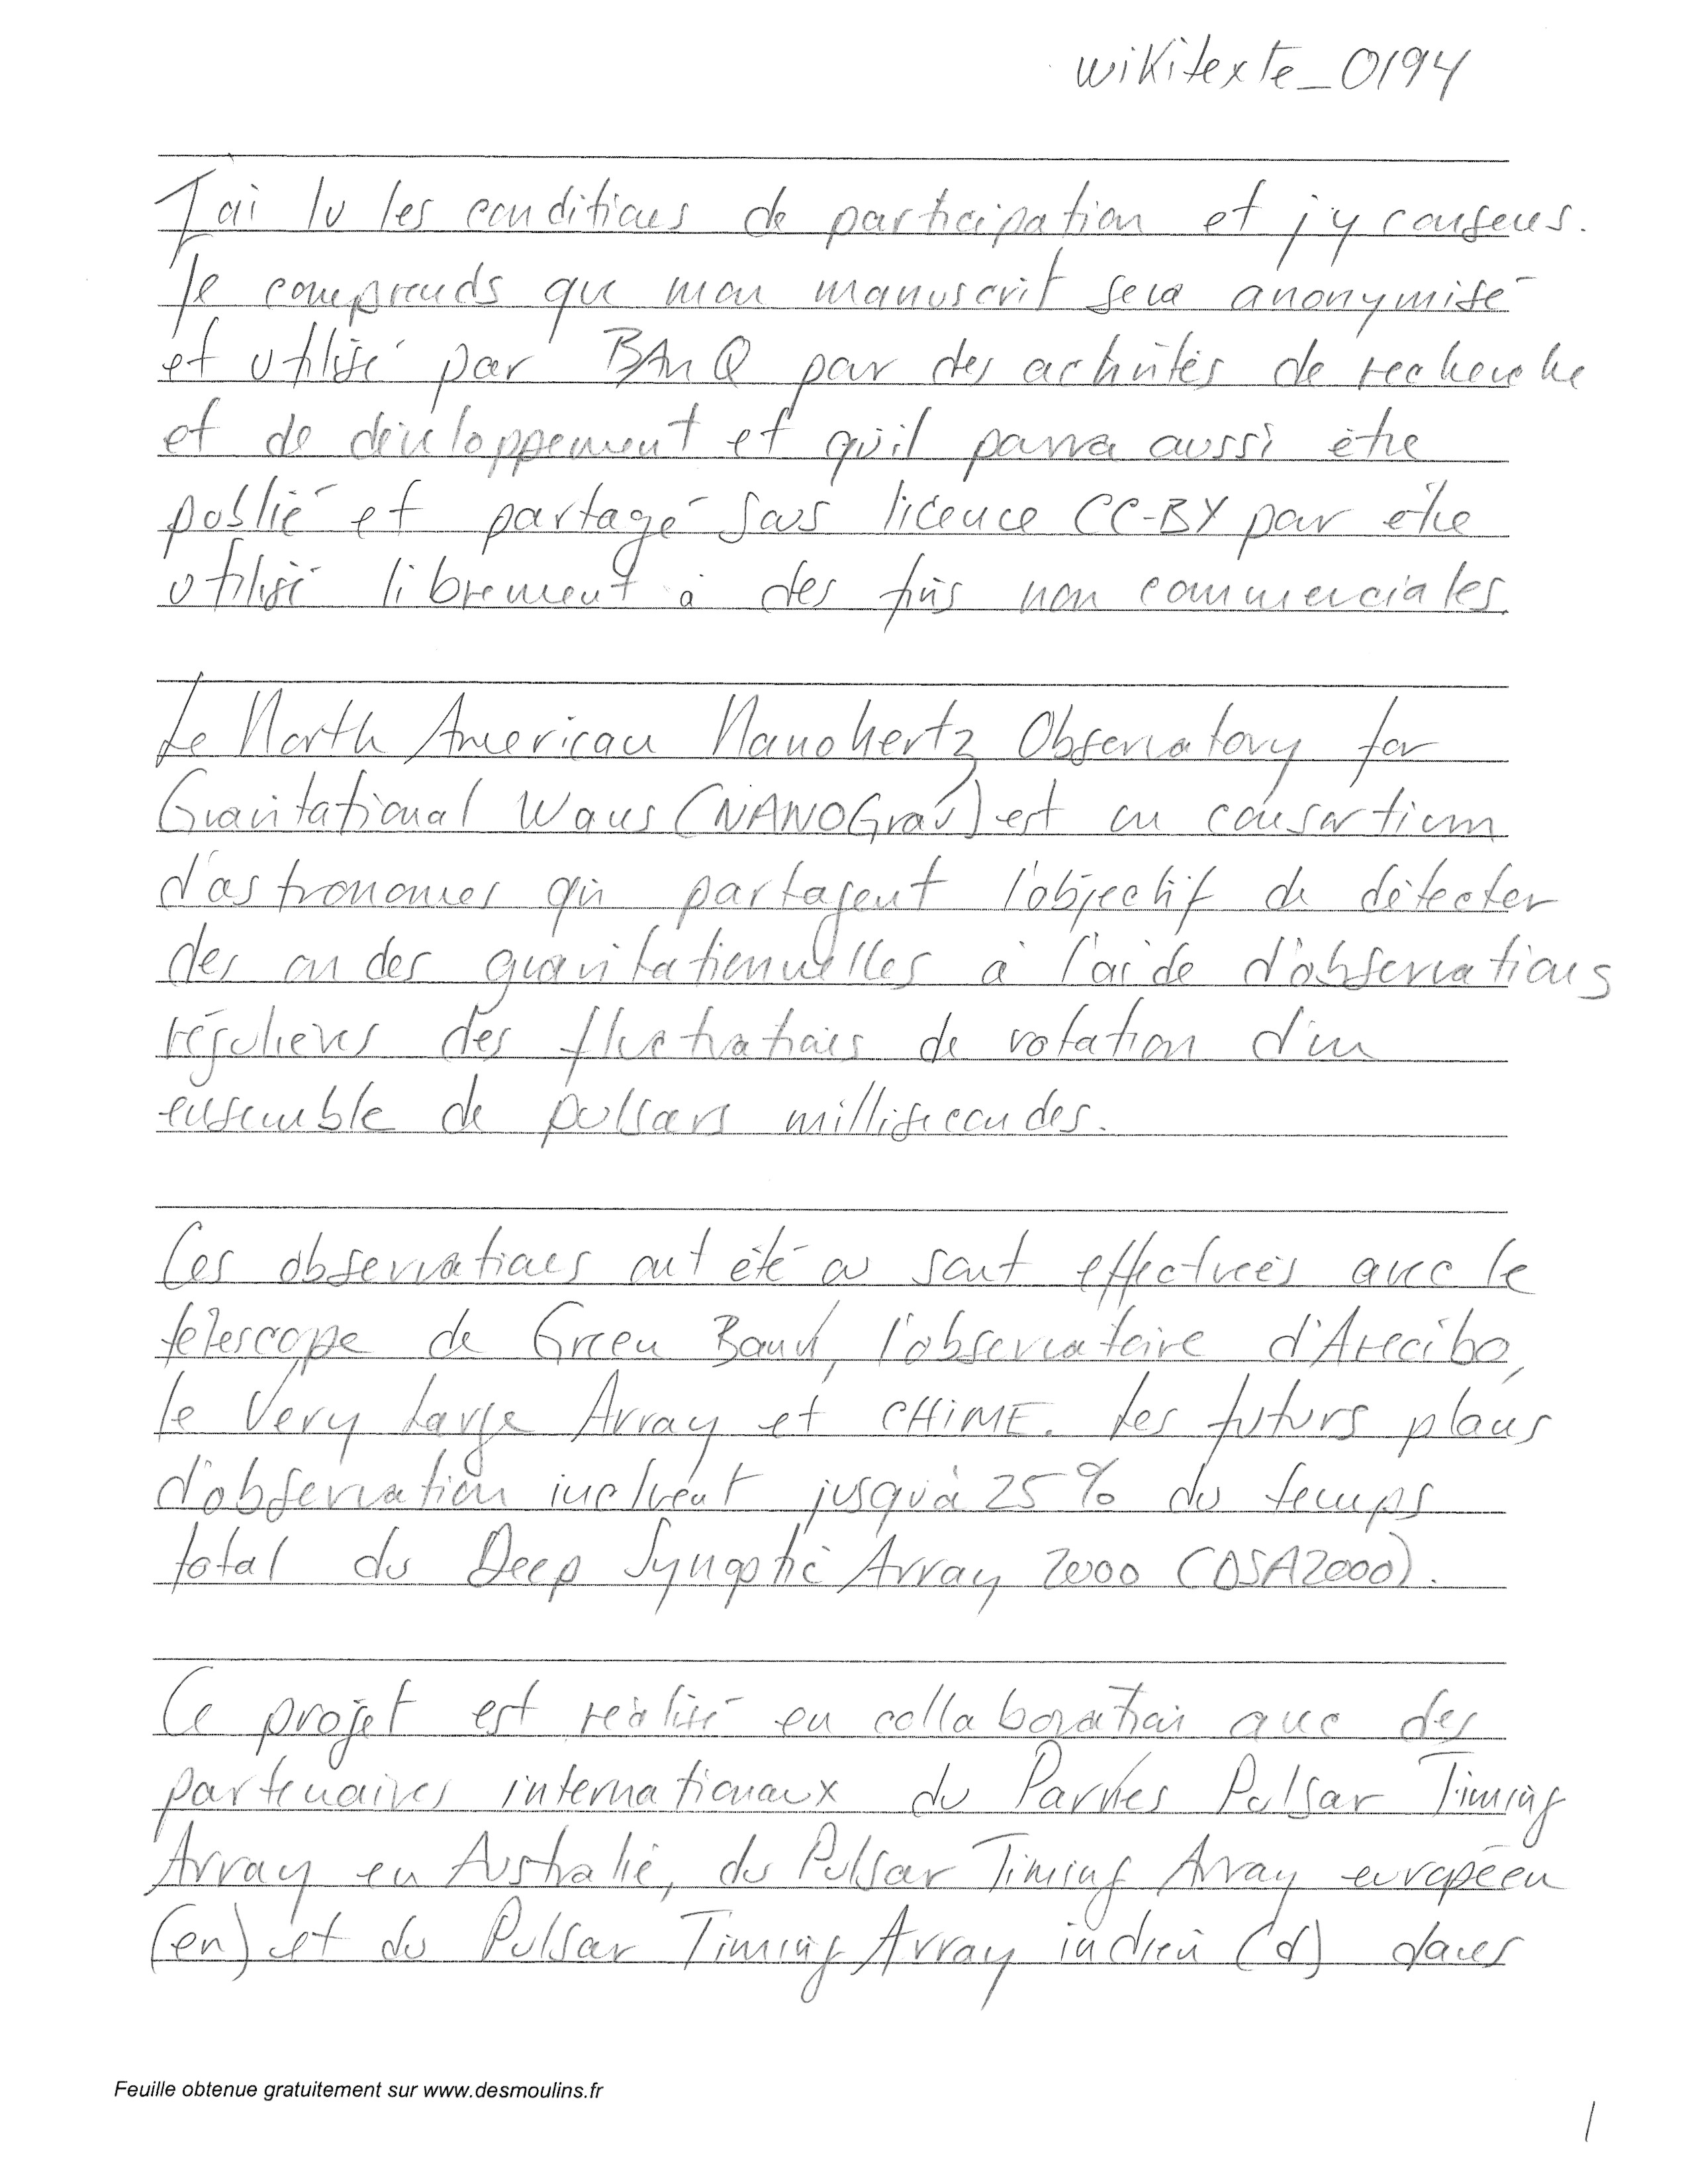 wikitexte_0194
J'ai lu les conditions de participation et j'y consens.
Je comprends que mon manuscrit sera anonymisé
et utilisé par BAnQ pour des activités de recherche
et de développement et qu'il pourra aussi être
publié et partagé sous licence CC-BY pour être
utilisé librement à des fins non commerciales.
Le North American Nanohertz Observatory for
Gravitational Waves (NANOGrav) est un consortium
d'astronomes qui partagent l'objectif de détecter
des ondes gravitationnelles à l'aide d'observations
régulières des fluctuations de rotation d'un
ensemble de pulsars millisecondes.
Ces observations ont été ou sont effectuées avec le
télescope de Green Bank, l'observatoire d'Arecibo,
le Very Large Array et CHIME. Les futurs plans
d'observation incluent jusqu'à 25 % du temps
total du Deep Synoptic Array 2000 (DSA2000).
Ce projet est réalisé en collaboration avec des
partenaires internationaux du Parkes Pulsar Timing
Array en Australie, du Pulsar Timing Array européen
(en) et du Pulsar Timing Array indien (d) dans
Feuille obtenue gratuitement sur www.desmoulins.fr
1